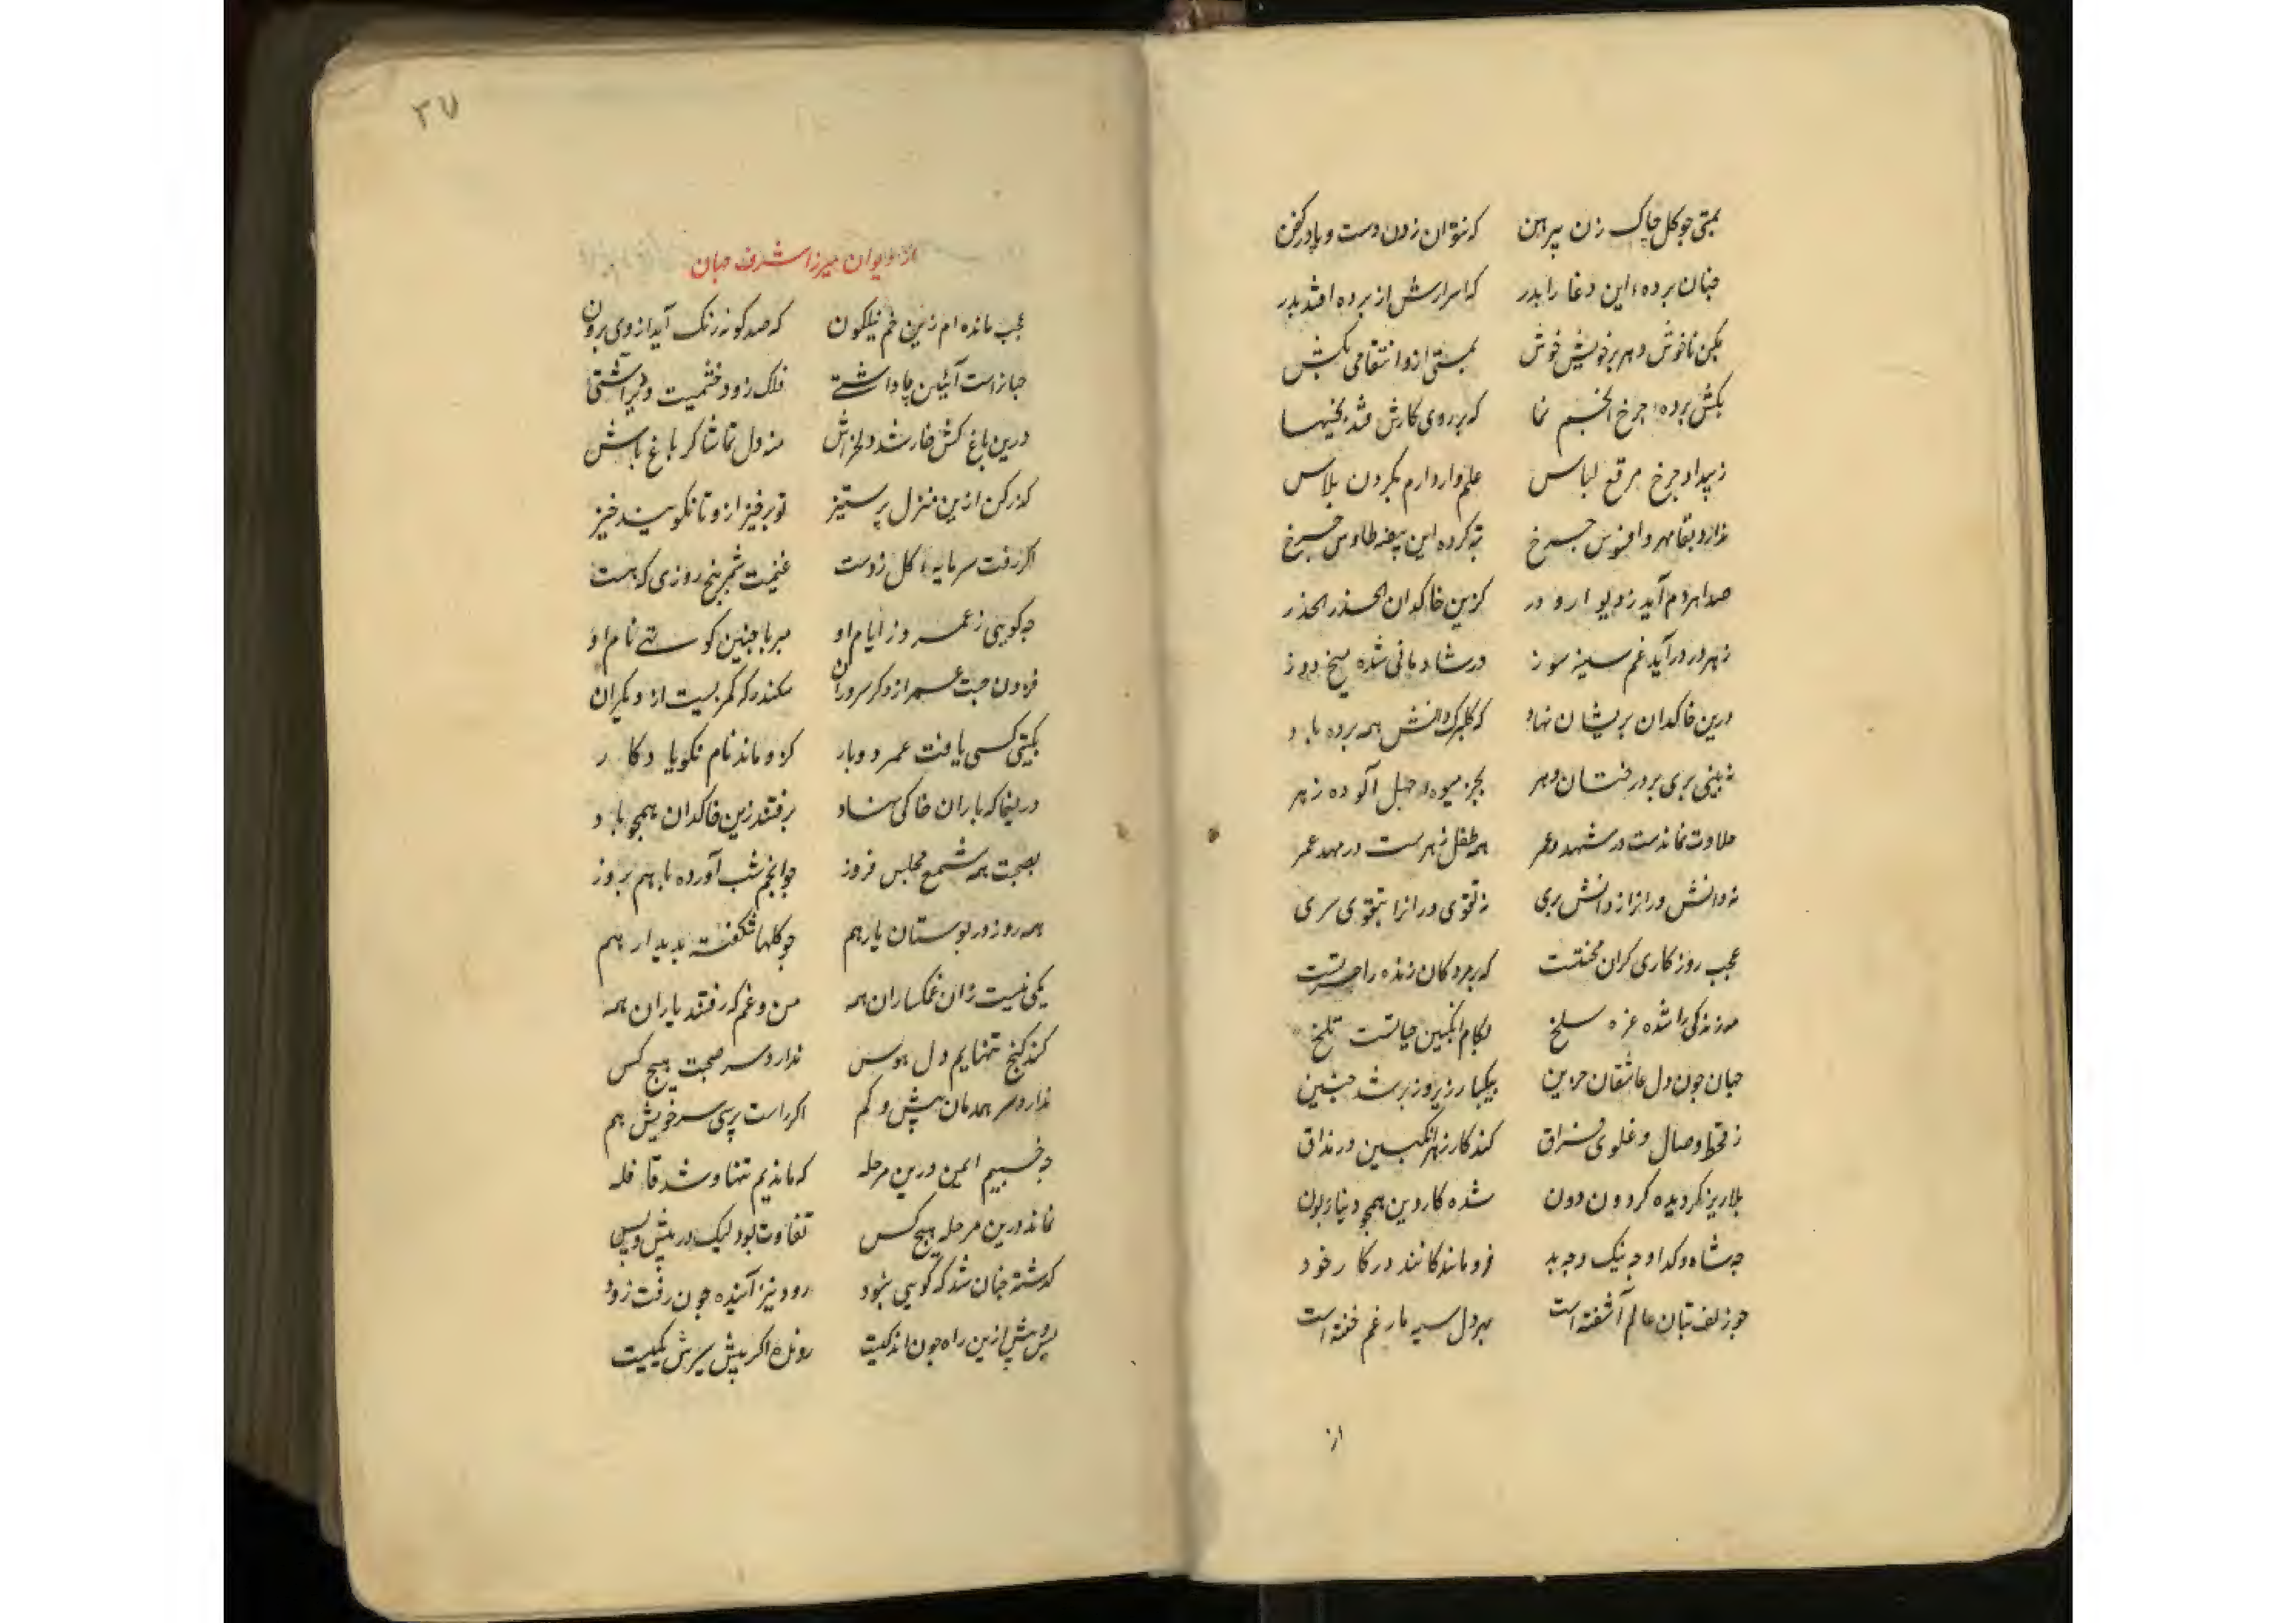 بمستی چو کل چاک زن پیرهن که نتوان زدن دست و پا در کفن
چنان پرده این دغا را بدر که اسرارش از پرده افتد بدر
مکن ناخوش دهر بر خویش خوش بمستی ازو انتقامی بکش
بکش پرده چرخ انجم نما که بر روی کارش فتد بخیها
ز بیداد چرخ مرقع لباس علم وار دارم بکردن پلاس
ندارد بقا مهر و افسوس چرخ تبه کرده این بیضه طاوس چرخ
صدا هر دم آید ز دیوار و در کزین خاکدان الحذر الحذر
ز هر در درآید غم سینه سوز در شادمانی شده میخ دوز
درین خاکدان پریشان نهاد که کلبرک دانش همه برده باد
نه بینی بری بر درختان دهر بجز میوه جهل آلوده زهر
حلاوت نماندست در شهد عمر همه طفل زهرست در مهد عمر
نه دانش ورانرا ز دانش بری نه تقوی ورانرا بتقوی سری
عجب روزکاری کران محنتست که بر مردکان زنده را حسرتست
مه زندکی را شده غره سلخ بکام انکبین حیاتست تلخ
جهان چون دل عاشقان حزین بیکبار زیر و زبر شد چنین
ز قحط وصال و غلوی فراق کند کار زهر انکبین در مذاق
بلا ریز کردیده کردون دون شده کار دین همچو دنیا زبون
چه شاه و کدا و چه نیک و چه بد فرو مانده کانند در کار خود
چو زلف بتان عالم آشفته است بهر دل سیه مار غم خفته است
از
۳۷
از دیوان میرزا شرف جهان
عجب مانده ام زین خم نیلکون که صد کونه رنک آید از وی برون
جهانراست آئین چا و آشتی فلک زود خشمیست و دیر آشتی
درین باغ کش خار شد دلخراش منه دل تماشا کر باغ باش
کذر کن ازین منزل پر ستیز تو برخیز ازو تا نکویند خیز
اکر رفت سرمایه کل ز دست غنیمت شمر پنج روزی که هست
چه کویی ز عمر و ز ایام او مبر با چنین کوتهی نام او
فزون جست عمر از دکر سروران سکندر که کمر بست از دیکران
بکیتی کسی یافت عمر دوبار کزو ماند نام نکو یادکار
دریغا که یاران خاکی نهاد برفتند زین خاکدان همچو باد
بصحبت همه شمع مجلس فروز چو انجم شب آورده با هم بروز
همه روز در بوستان یار هم چو کلها شکفته بدیدار هم
یکی نیست زان غمکساران همه من و غم که رفتند یاران همه
کند کنج تنهایم دل هوس ندارد سر صحبت هیچ کس
ندارد سر همدمان بیش و کم اکر راست پرسی سر خویش هم
چه خسبیم ایمن درین مرحله که ماندیم تنها و شد قافله
نماند درین مرحله هیچ کس تفاوت بود لیک در پیش و پس
کذشته چنان شد که کویی نبود رود نیز آینده چون رفت زود
پس و پیش ازین راه چون اندکیست رونده اکر پیش سیرش یکیست